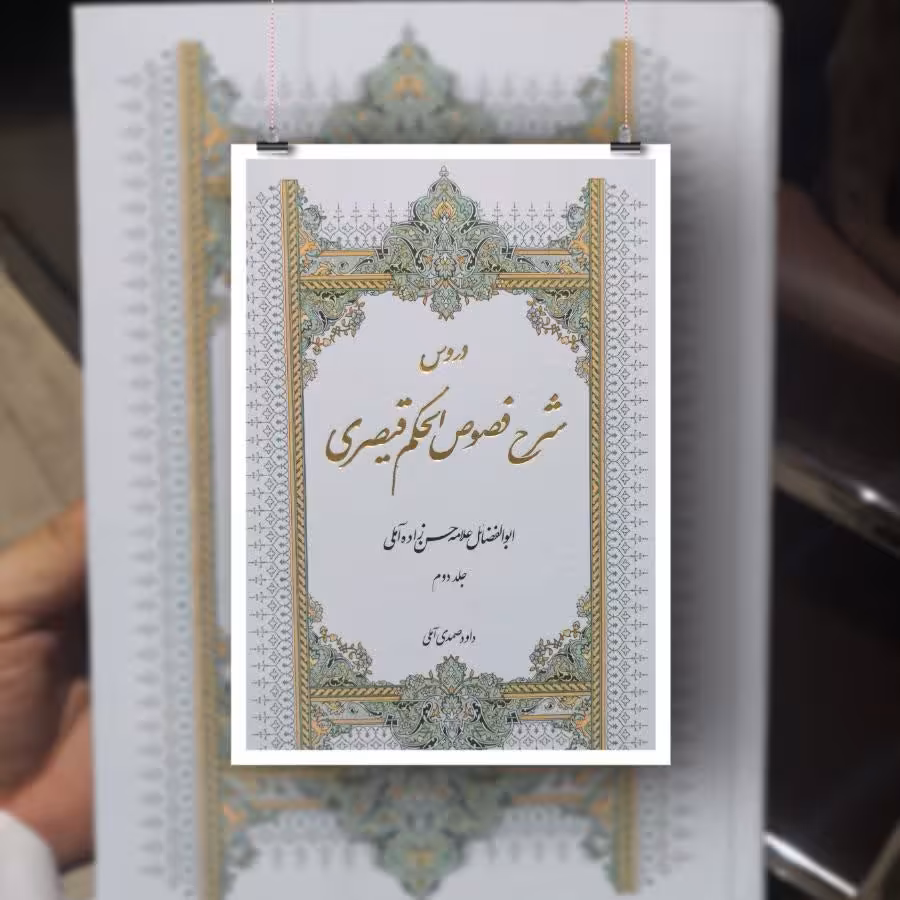 دروس
شرح فصوص الحکم قیصری
ابوالفضائل علامه حسن زاده آملی
جلد دوم
داود صمدی آملی